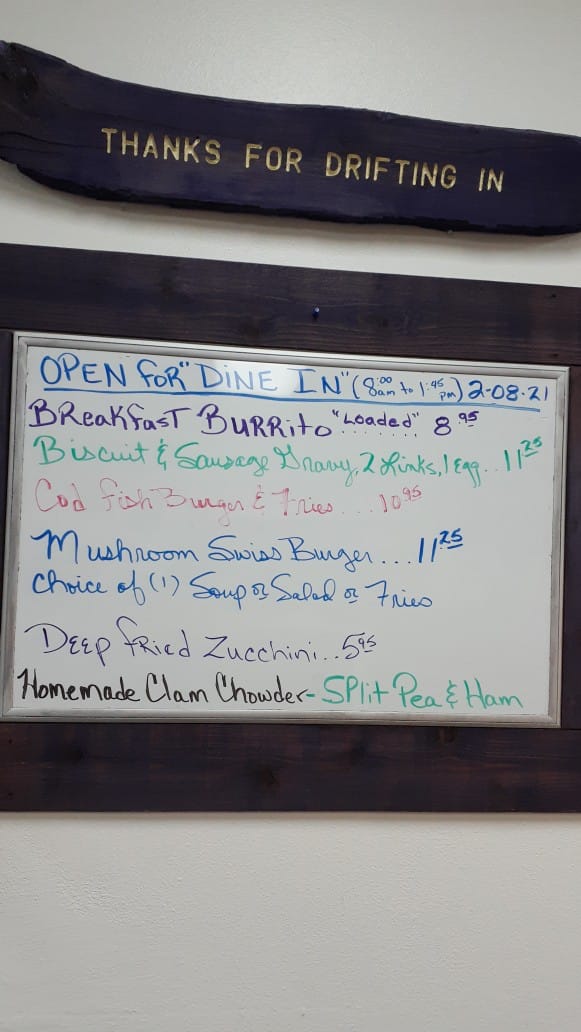 THANKS FOR DRIFTING IN
OPEN FOR "DINE IN" (8:00 am to 1:45 pm) 2-08-21
BReakfasT BURRito "Loaded" ....... 8 95
Biscuit & Sausage Gravy, 2 Links, 1 Egg.. 11 25
Cod fish Burger & Fries.... 10 95
Mushroom Swiss Burger... 11 25
Choice of (1) Soup or Salad or Fries
Deep fRied Zucchini.. 5 95
Homemade Clam Chowder- SPlit Pea & Ham